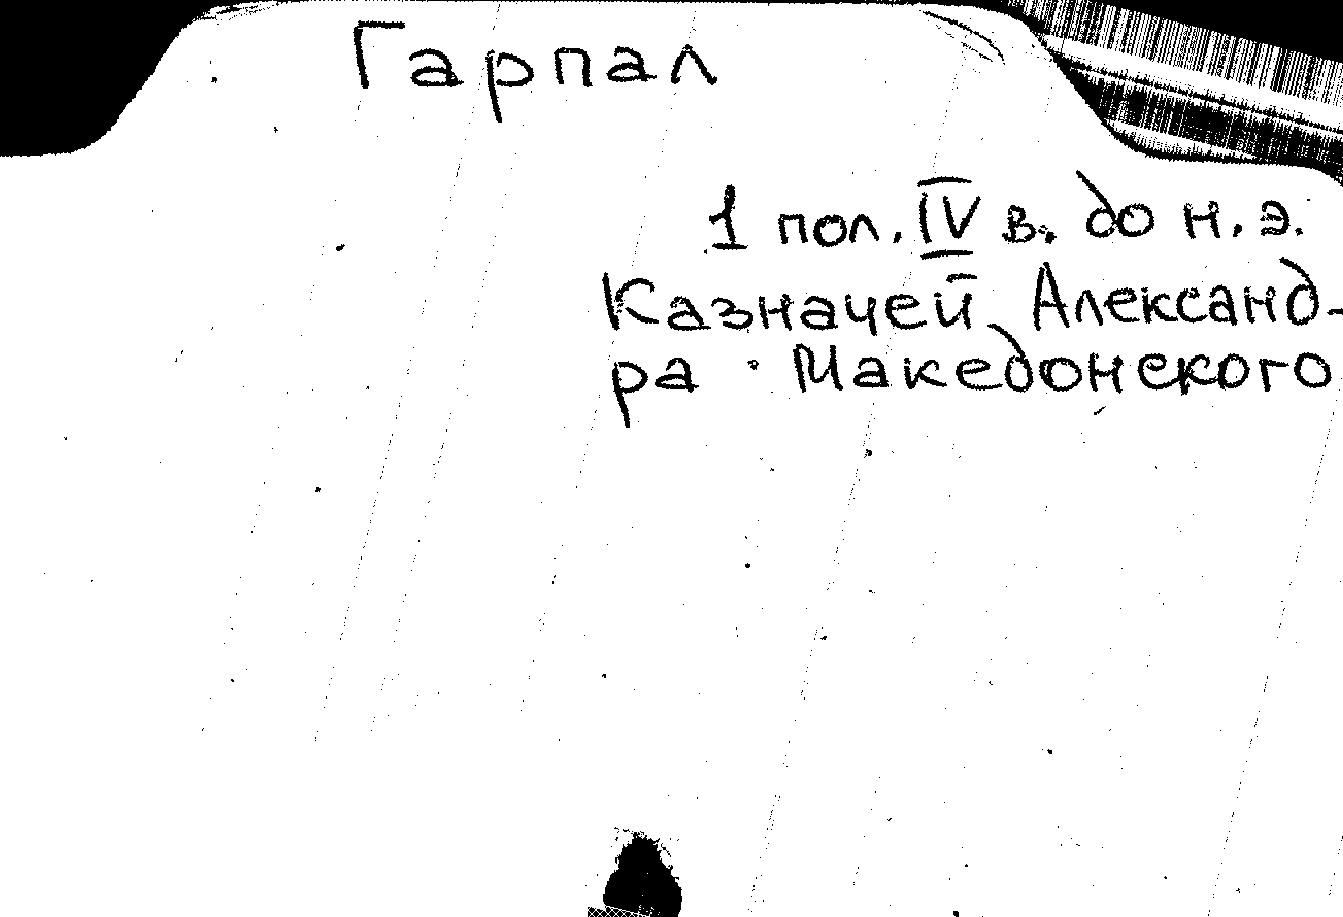 Гарпал
1 пол. IV в. до н. э.
Казначей Александ-
ра Македонского